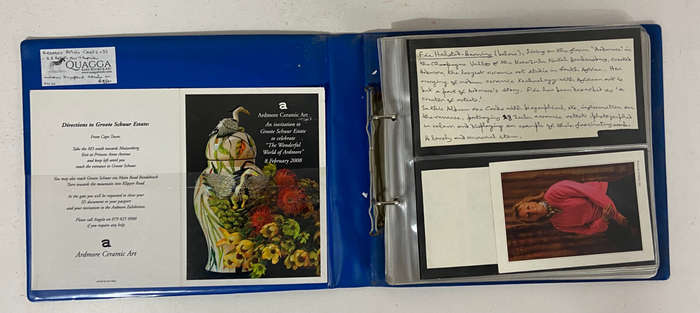 QUAGGA
Directions to Groote Schuur Estate:
From Cape Town
Take the M3 south towards Muizenberg
Exit at Princess Anne Avenue
and keep left until you
reach the entrance to Groote Schuur
You may also reach Groote Schuur via Main Road Rondebosch
Turn towards the mountain into Klipper Road
At the gate you will be requested to show your
ID document or your passport
and your invitation to the Ardmore Exhibition
Please call Angela on
if you require any help
a
Ardmore Ceramic Art
a
Ardmore Ceramic Art
An invitation to
Groote Schuur Estate
to celebrate
"The Wonderful
World of Ardmore"
8 February 2008
Fée Halsted-Berning (below), living on the farm "Ardmore" in
the Champagne Valley of the KwaZulu Natal Drakensberg, created
Ardmore, the largest ceramic art studio in South Africa. Her
merging of modern ceramic technology with African art is
but a part of Ardmore's story. Fée has been described as 'a
creator of artists'.
In this Album are Cards with biographical etc information on
the reverse, portraying
in colour and displaying an example of their fascinating work.
A lovely and unusual item.